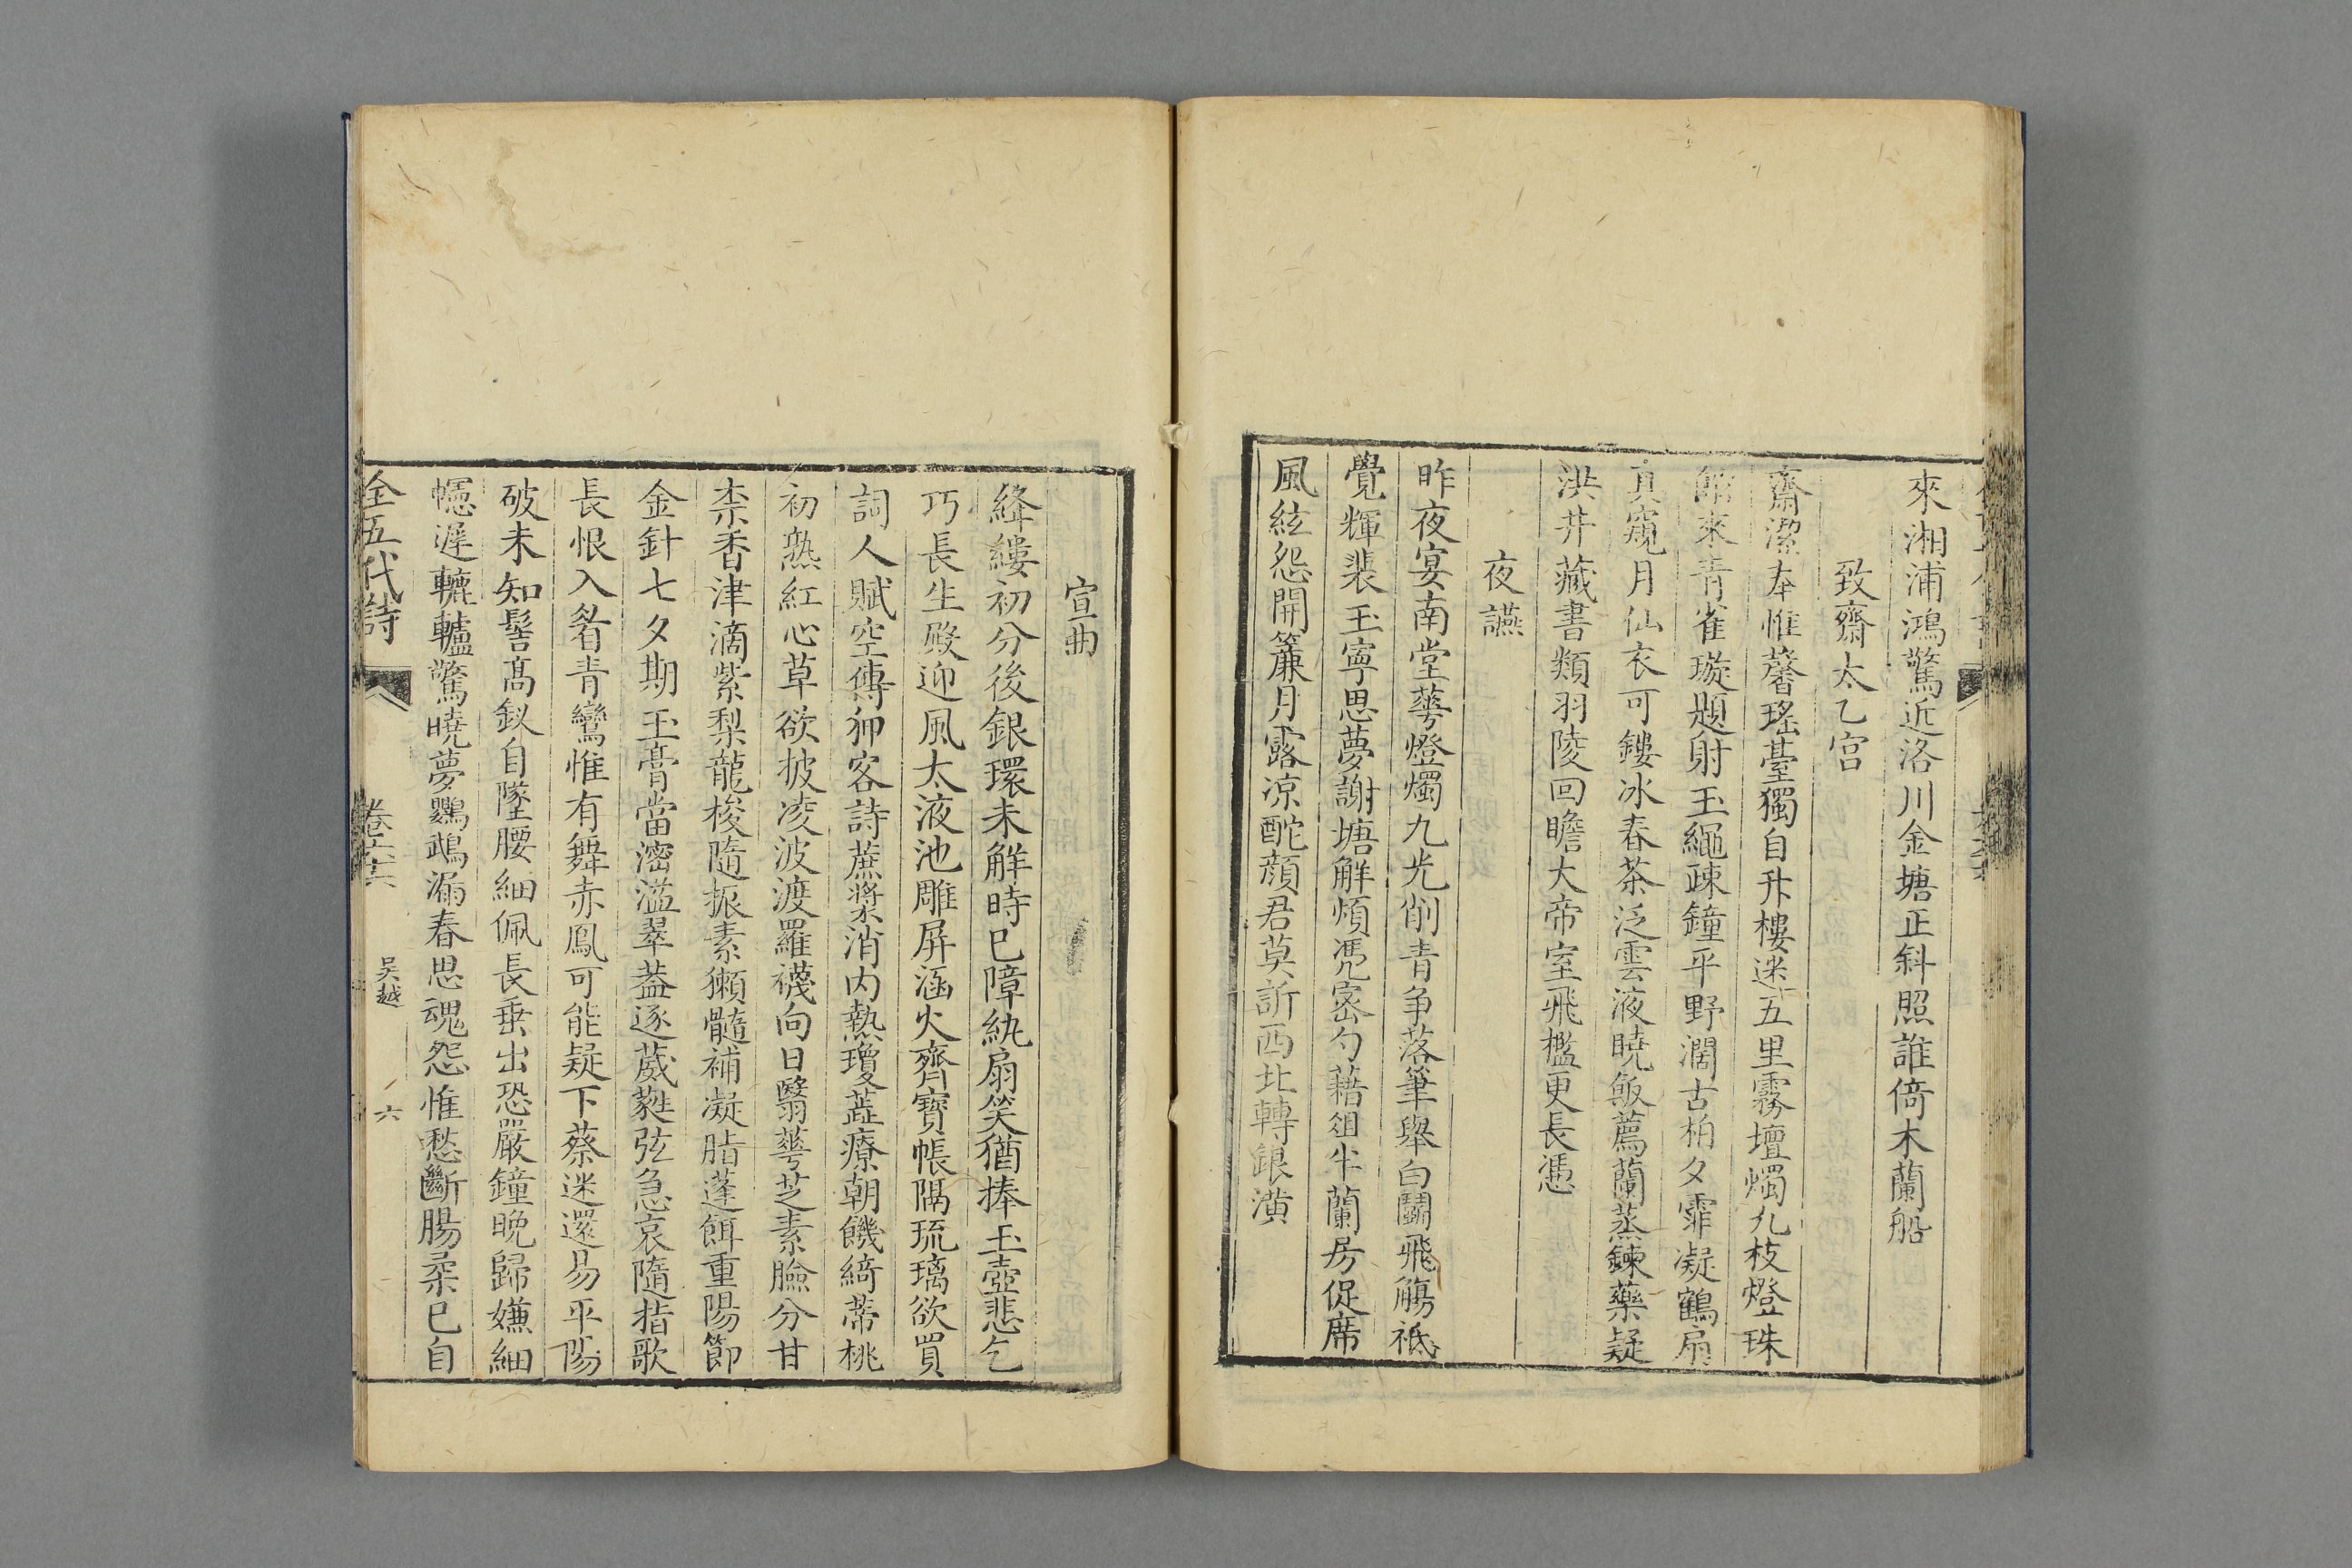 來湘浦鴻驚近洛川金塘正斜照誰倚木蘭船
致齋太乙宫
齋潔奉惟馨瑤臺獨自升樓迷五里霧壇燭九枝燈珠
館來青雀璇題射玉繩疎鐘平野濶古柏夕霏凝鶴扇
真窺月仙衣可鏤冰春茶泛雲液曉飯薦蘭蒸鍊藥疑
洪井藏書類羽陵回瞻大帝室飛檻更長憑
夜讌
昨夜宴南堂蕚燈燭九光削青争落筆舉白鬭飛觴祗
覺輝裴玉寧思夢謝塘解煩憑宻勺藉俎半蘭房促席
風絃怨開簾月露凉酡顔君莫訢西北轉銀潢
宣曲
絳縷初分後銀環未觧時已障紈扇笑猶捧玉壺悲乞
巧長生殿迎風太液池雕屏涵火齊寶帳隔琉璃欲買
詞人賦空傳狎客詩蔗漿消内熱瓊蘂療朝饑綺蔕桃
初熟紅心草欲披凌波渡羅襪向日翳蕚芝素臉分甘
柰香津滴紫梨龍梭隨振素獺髓補凝脂蓬餌重陽節
金針七夕期玉膏當滵溢翠葢逐葳蕤弦急哀隨指歌
長恨入眉青鸞惟有舞赤鳳可能疑下蔡迷還易平陽
破未知髻髙釵自墜腰細佩長垂出恐嚴鐘晚歸嫌細
幰遲轆轤驚曉夢鸚鵡漏春思魂怨惟愁斷腸柔已自
全五代詩
卷
吴越
六